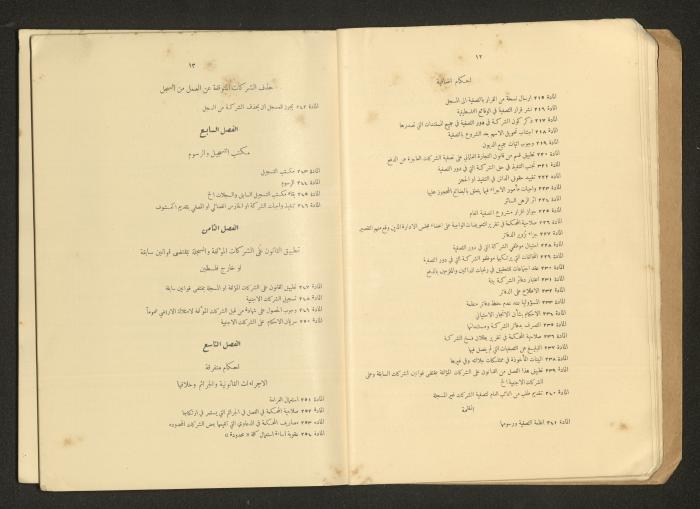 ١٢
احكام اضافية
المادة ٢١٥ ارسال نسخة من القرار بالتصفية الى المسجل
المادة ٢١٦ نشر قرار التصفية في الوقائع الفلسطينية
المادة ٢١٧ ذكر كون الشركة في دور التصفية في جميع المستندات التي تصدرها
المادة ٢١٨ اجتناب تحويل الاسهم بعد الشروع بالتصفية
المادة ٢١٩ وجوب اثبات جميع الديون
المادة ٢٢٠ تطبيق قسم من قانون التجارة العثماني على تصفية الشركات العاجزة عن الدفع
المادة ٢٢١ تجنب التنفيذ في حق الشركة التي في دور التصفية
المادة ٢٢٢ تقييد حقوق الدائن في التنفيذ او الحجز
المادة ٢٢٣ واجبات مأمور الاجراء فيما يتعلق بالبضائع المحجوز عليها
المادة ٢٢٤ اثر الرهن السائر
المادة ٢٢٥ جواز اقرار مشروع التصفية العام
المادة ٢٢٦ صلاحية المحكمة في تقرير التعويضات الواجبة على اعضاء مجلس الادارة الذين وقع منهم التقصير
المادة ٢٢٧ جزاء تزوير الدفاتر
المادة ٢٢٨ احتيال موظفي الشركة التي في دور التصفية
المادة ٢٢٩ المخالفات التي يرتكبها موظفو الشركة التي في دور التصفية
المادة ٢٣٠ عقد اجتماعات للتحقيق في رغبات الدائنين والملزمين بالدفع
المادة ٢٣١ اعتبار دفاتر الشركة بينة
المادة ٢٣٢ الاطلاع على الدفاتر
المادة ٢٣٣ المسؤولية عند عدم حفظ دفاتر منظمة
المادة ٢٣٤ الاحكام بشأن الاتجار الاحتيالي
المادة ٢٣٥ التصرف بدفاتر الشركة ومستنداتها
المادة ٢٣٦ صلاحية المحكمة في تقرير بطلان فسخ الشركة
المادة ٢٣٧ التبليغ عن التصفيات التي لم يفصل فيها
المادة ٢٣٨ البينات المأخوذة في ممتلكات جلالته وفي غيرها
المادة ٢٣٩ تطبيق هذا الفصل من القانون على الشركات المؤلفة بمقتضى قوانين الشركات السابقة وعلى
الشركات الاجنبية الخ
المادة ٢٤٠ تقديم طلب من النائب العام لتصفية الشركات غير المسجلة
المادة ٢٤١ انظمة التصفية ورسومها
١٣
حذف الشركات المتوقفة عن العمل من السجل
المادة ٢٤٢ يجوز للمسجل ان يحذف الشركة من السجل
الفصل السابع
مكتب التسجيل والرسوم
المادة ٢٤٣ مكتب التسجيل
المادة ٢٤٤ الرسوم
المادة ٢٤٥ بقاء مكتب التسجيل السابق والسجلات الخ
المادة ٢٤٦ تنفيذ واجبات الشركة او الحارس القضائي او المصفي بتقديم الكشوف
الفصل الثامن
تطبيق القانون على الشركات المؤلفة والمسجلة بمقتضى قوانين سابقة
او خارج فلسطين
المادة ٢٤٧ تطبيق القانون على الشركات المؤلفة او المسجلة بمقتضى قوانين سابقة
المادة ٢٤٨ تسجيل الشركات الاجنبية
المادة ٢٤٩ وجوب الحصول على شهادة من قبل الشركات المؤلفة لامتلاك الاراضي عموماً
المادة ٢٥٠ سريان الاحكام على الشركات الاجنبية
الفصل التاسع
احكام متفرقة
الاجراءات القانونية والجرائم وخلافها
المادة ٢٥١ استيفاء الغرامة
المادة ٢٥٢ صلاحية المحكمة في الفصل في الجرائم التي يستمر في ارتكابها
المادة ٢٥٣ مصاريف المحكمة في الدعاوي التي تقيمها بعض الشركات المحدودة
المادة ٢٥٤ عقوبة اساءة استعمال كلمة «محدودة»